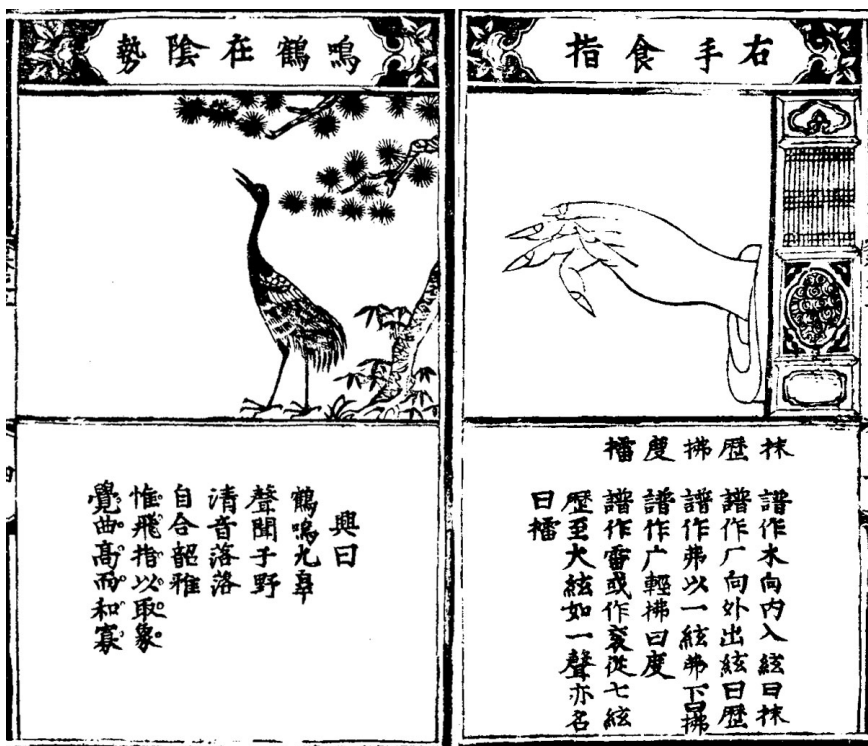 右手食指
抹 譜作木向内入絃曰抹
歴 譜作厂向外出絃曰歴
拂 譜作弗以一絃弗下曰拂
度 譜作广輕拂曰度
擂 譜作雷或作衮從七絃
歴至大絃如一聲亦名
曰擂
鳴鶴在陰勢
興曰
鶴鳴九皐
聲聞于野
清音落落
自合韶雅
惟飛指以取象
覺曲高而和寡